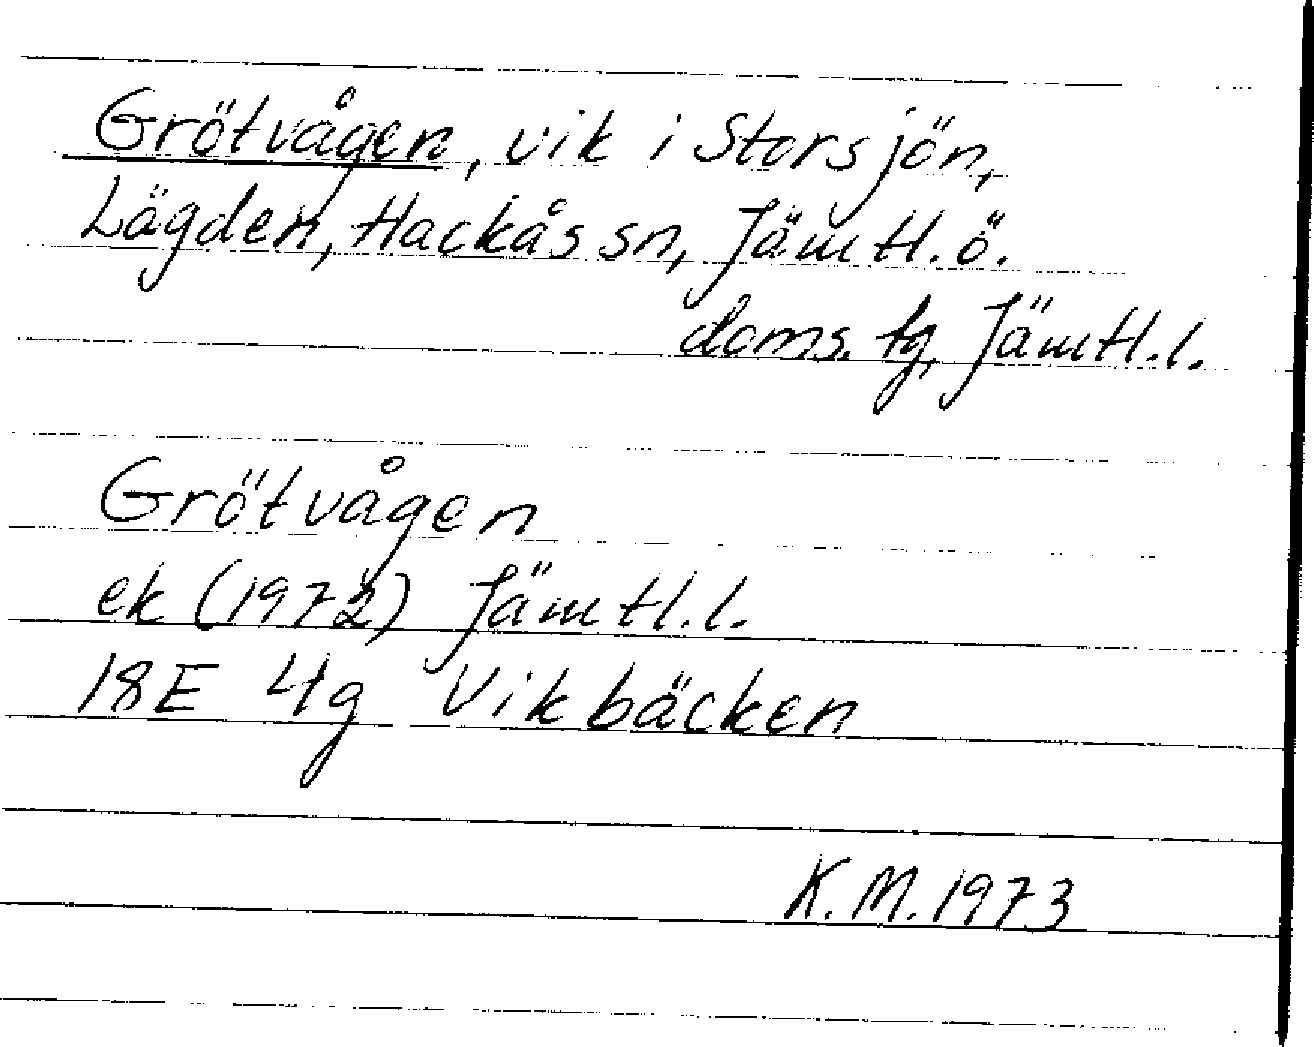 Grötvågen, vik i Storsjön,
Lägden, Hackås sn, Jämtl. ö.
doms. tg, Jämtl. l.
Grötvågen
ek (1972) Jämtl. l.
18E 4g Vikbäcken
K. M. 1973